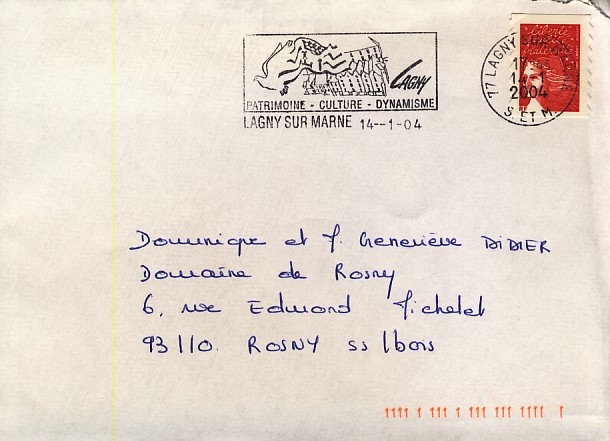 LAGNY
PATRIMOINE - CULTURE - DYNAMISME
LAGNY SUR MARNE 14--1-04
77 LAGNY SUR MARNE
17
14
2004
S. ET M.
Liberté
Fraternité
Dominique et J. Geneviève DIDIER
Domaine de Rosny
6, rue Edmond Michelet
93110. ROSNY ss/bois